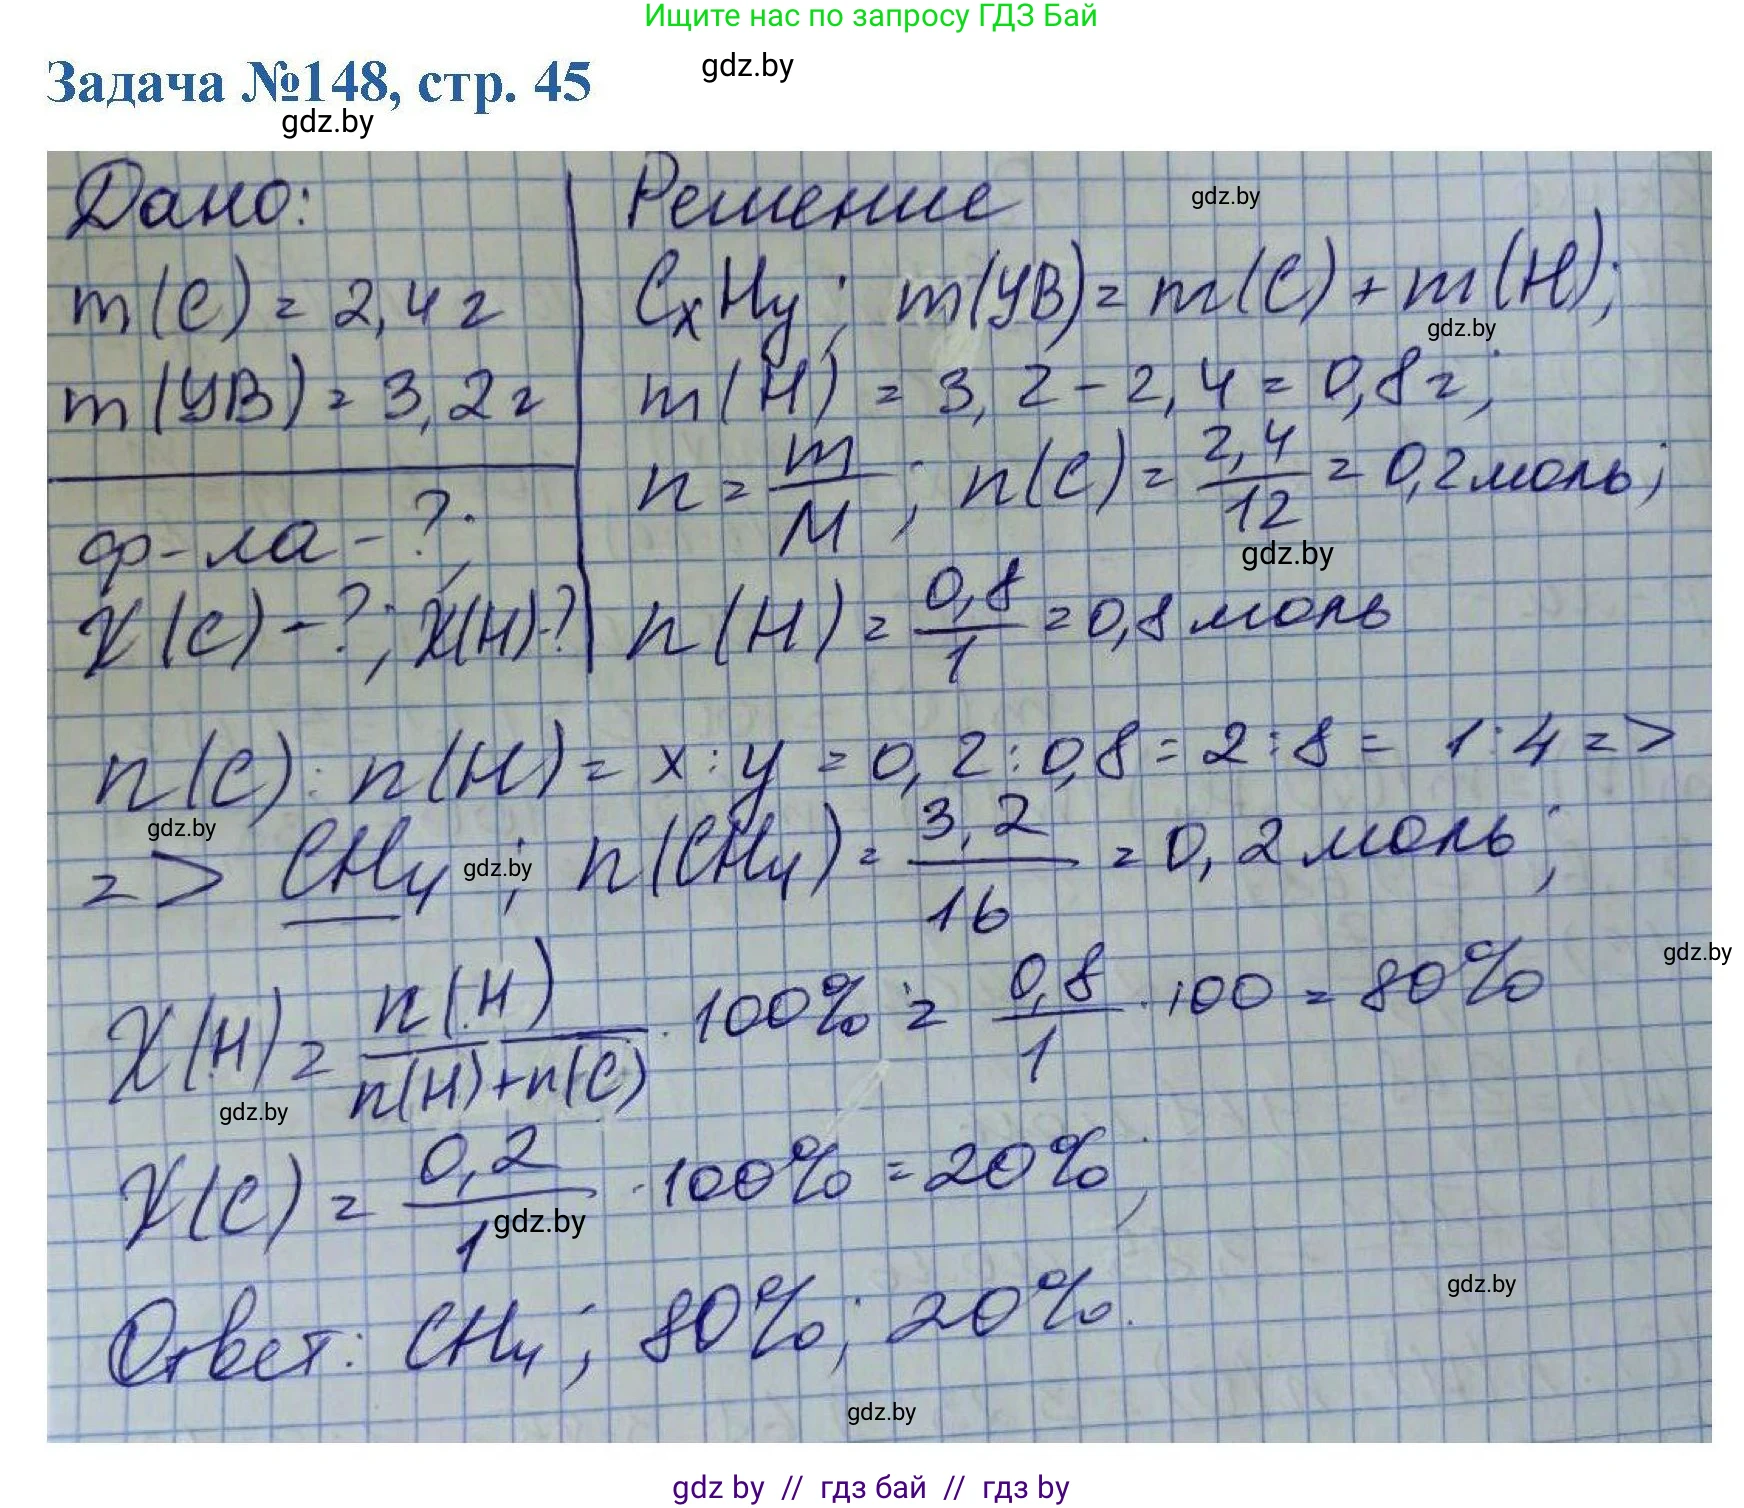 Ищите нас по запросу ГДЗ Бай
Задача №148, стр. 45
gdz.by
gdz.by
Дано:
m(C) = 2,4 г
m(УВ) = 3,2 г
ф-ла - ?;
X(C) - ?; X(H)-?
Решение
gdz.by
CxHy; m(УВ) = m(C) + m(H);
gdz.by
m(H) = 3,2 - 2,4 = 0,8 г;
n = m/M; n(C) = 2,4/12 = 0,2 моль;
gdz.by
n(H) = 0,8/1 = 0,8 моль
n(C) : n(H) = x : y = 0,2 : 0,8 = 2 : 8 = 1 : 4 =>
gdz.by
=> CH4; n(CH4) = 3,2/16 = 0,2 моль;
gdz.by
gdz.by
X(H) = n(H)/n(H)+n(C) · 100% = 0,8/1 · 100 = 80%
gdz.by
X(C) = 0,2/1 · 100% = 20%;
gdz.by
gdz.by
Ответ: CH4; 80%; 20%.
gdz.by
gdz by // гдз бай // гдз by